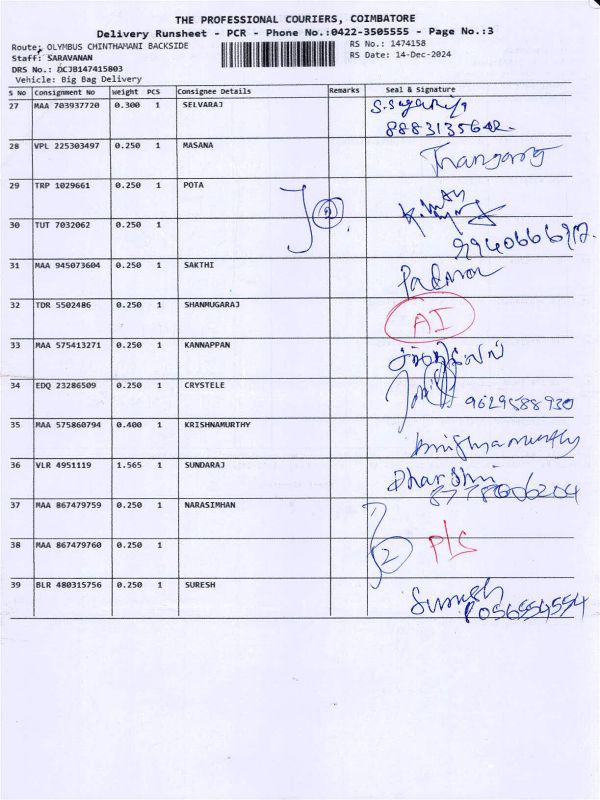 THE PROFESSIONAL COURIERS, COIMBATORE
Delivery Runsheet - PCR - Phone No.:0422-3505555 - Page No.:3
Route: OLYMBUS CHINTHAMANI BACKSIDE RS No.: 1474158
Staff: SARAVANAN RS Date: 14-Dec-2024
DRS No.: DCJB147415803
Vehicle: Big Bag Delivery
S No Consignment No Weight PCS Consignee Details Remarks Seal & Signature
27 MAA 703937720 0.300 1 SELVARAJ
28 VPL 225303497 0.250 1 MASANA
29 TRP 1029661 0.250 1 POTA
2
30 TUT 7032062 0.250 1
31 MAA 945073604 0.250 1 SAKTHI
32 TDR 5502486 0.250 1 SHANMUGARAJ
AI
33 MAA 575413271 0.250 1 KANNAPPAN
34 EDQ 23286509 0.250 1 CRYSTELE 9629588930
35 MAA 575860794 0.400 1 KRISHNAMURTHY
36 VLR 4951119 1.565 1 SUNDARAJ Dharshni
8778606204
37 MAA 867479759 0.250 1 NARASIMHAN
P/S
38 MAA 867479760 0.250 1 2
39 BLR 480315756 0.250 1 SURESH Suresh